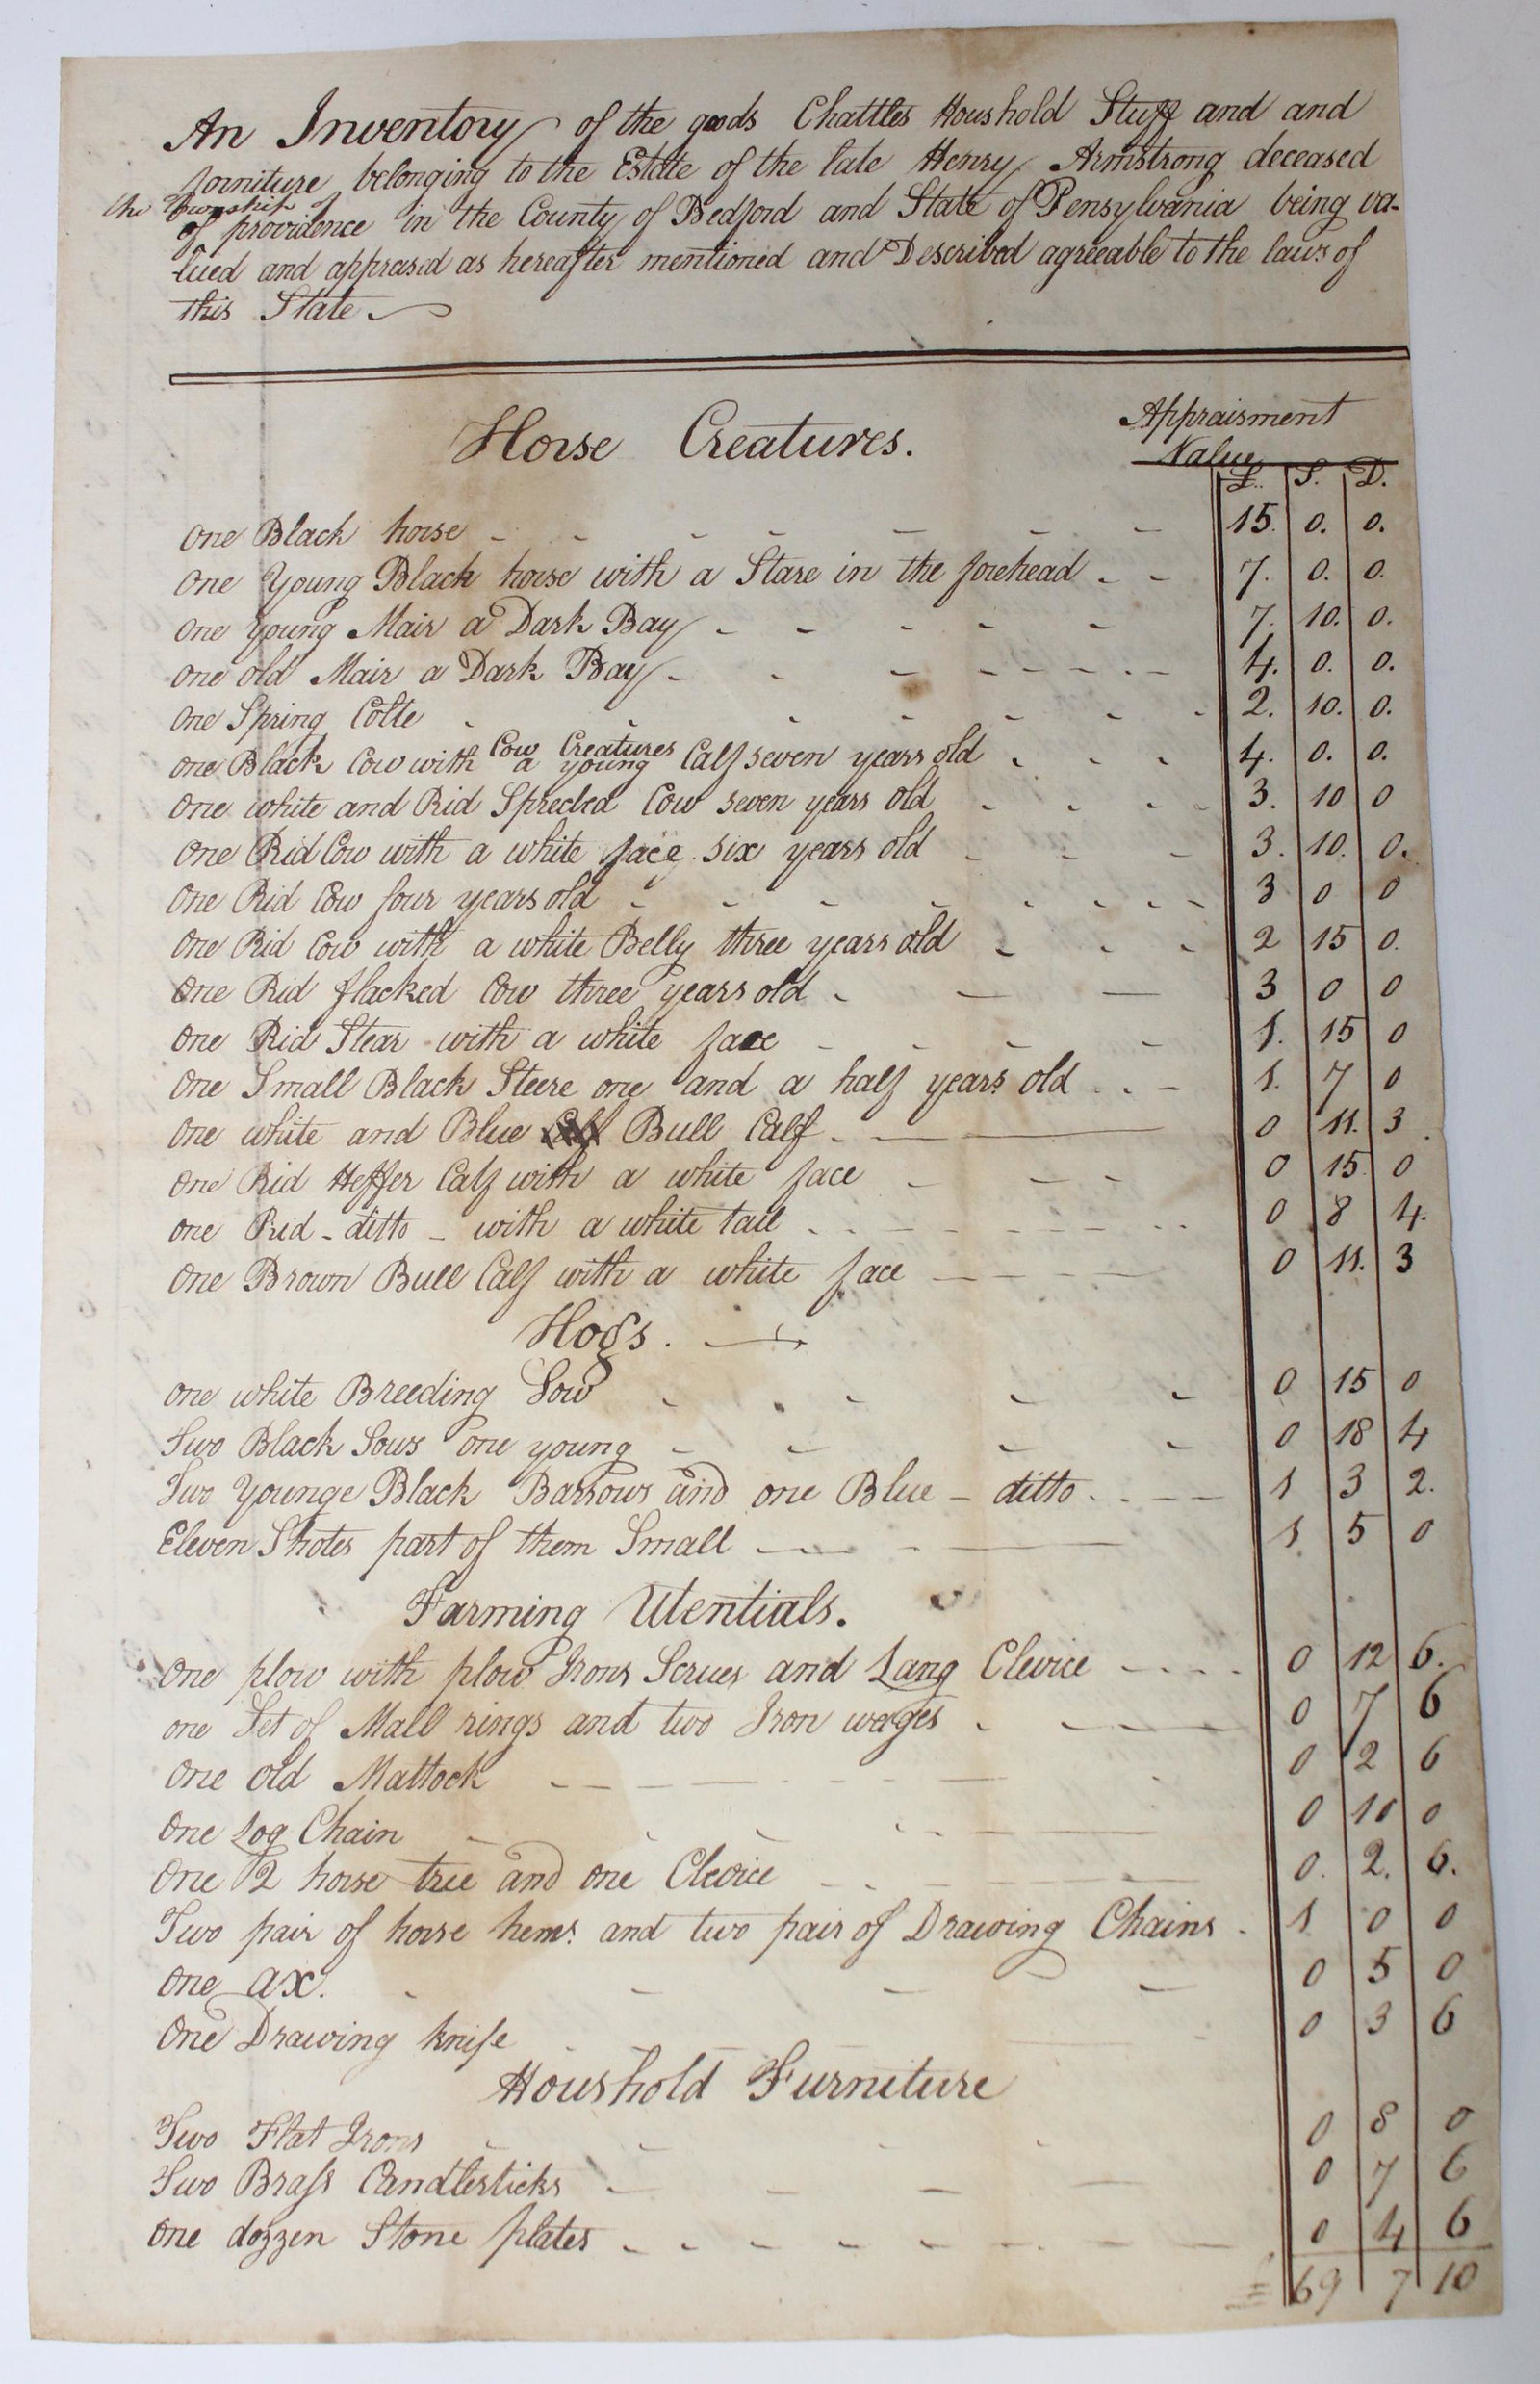 An Inventory of the goods Chattles Houshold Stuff and and
forniture belonging to the Estate of the late Henry Armstrong deceased
the Township of
of providence in the County of Bedford and State of Pensylvania being va-
lued and appreased as hereafter mentioned and Described agreeable to the laws of
this State
Horse Creatures.
Appraisment
Value
L. S. D.
One Black horse - - - - - - - 15. 0. 0.
One Young Black horse with a Stare in the forehead - - 7. 0. 0.
One Young Mair a Dark Bay - - - - - 7. 10. 0.
One old Mair a Dark Bay - - - - - - - - 4. 0. 0.
One Spring Colte - - - - - - - 2. 10. 0.
Cow Creatures
One Black Cow with a young Calf seven years old - - - 4. 0. 0.
One white and Rid Spreckled Cow seven years old - - - - 3. 10 0
One Rid Cow with a white face six years old - - - 3. 10. 0.
One Rid Cow four years old - - - - - - - - 3 0 0
One Rid Cow with a white Belly three years old - - - 2 15 0.
One Rid flacked Cow three years old - - - 3 0 0
One Rid Stear with a white face - - - - 1. 15 0
One Small Black Steere one and a half years old - - - 1. 7 0
One white and Blue Bull Calf - - 0 11. 3
One Rid Heffer Calf with a white face - - - 0 15. 0
one Rid - ditto - with a white tail - - - - - - - - 0 8 4.
One Brown Bull Calf with a white face - - - - 0 11. 3
Hogs.
one white Breeding Sow - - - - - 0 15 0
Two Black Sows one young - - - - 0 18 4
Two Younge Black Barrows and one Blue - ditto - - - - 1 3 2.
Eleven Shotes part of them Small - - - - 1 5 0
Farming Utentials.
One plow with plow Irons Scrues and Lang Clevice - - - - 0 12 6.
one Set of Mall rings and two Iron weges - - - - 0 7 6
One old Mattock - - - - - - - 0 2 6
One Log Chain - - - - - - 0 10 0
One 2 horse tree and one Clevice - - - - - 0. 2. 6.
Two pair of horse hems. and two pair of Drawing Chains - 1 0 0
One ax. - - - - 0 5 0
One Drawing knife - - - - 0 3 6
Houshold Furniture
Two Flat Irons - - - - 0 8 0
Two Brass Candlesticks - - - - 0 7 6
One dozzen Stone plates - - - - - - - - 0 4 6
69 7 10